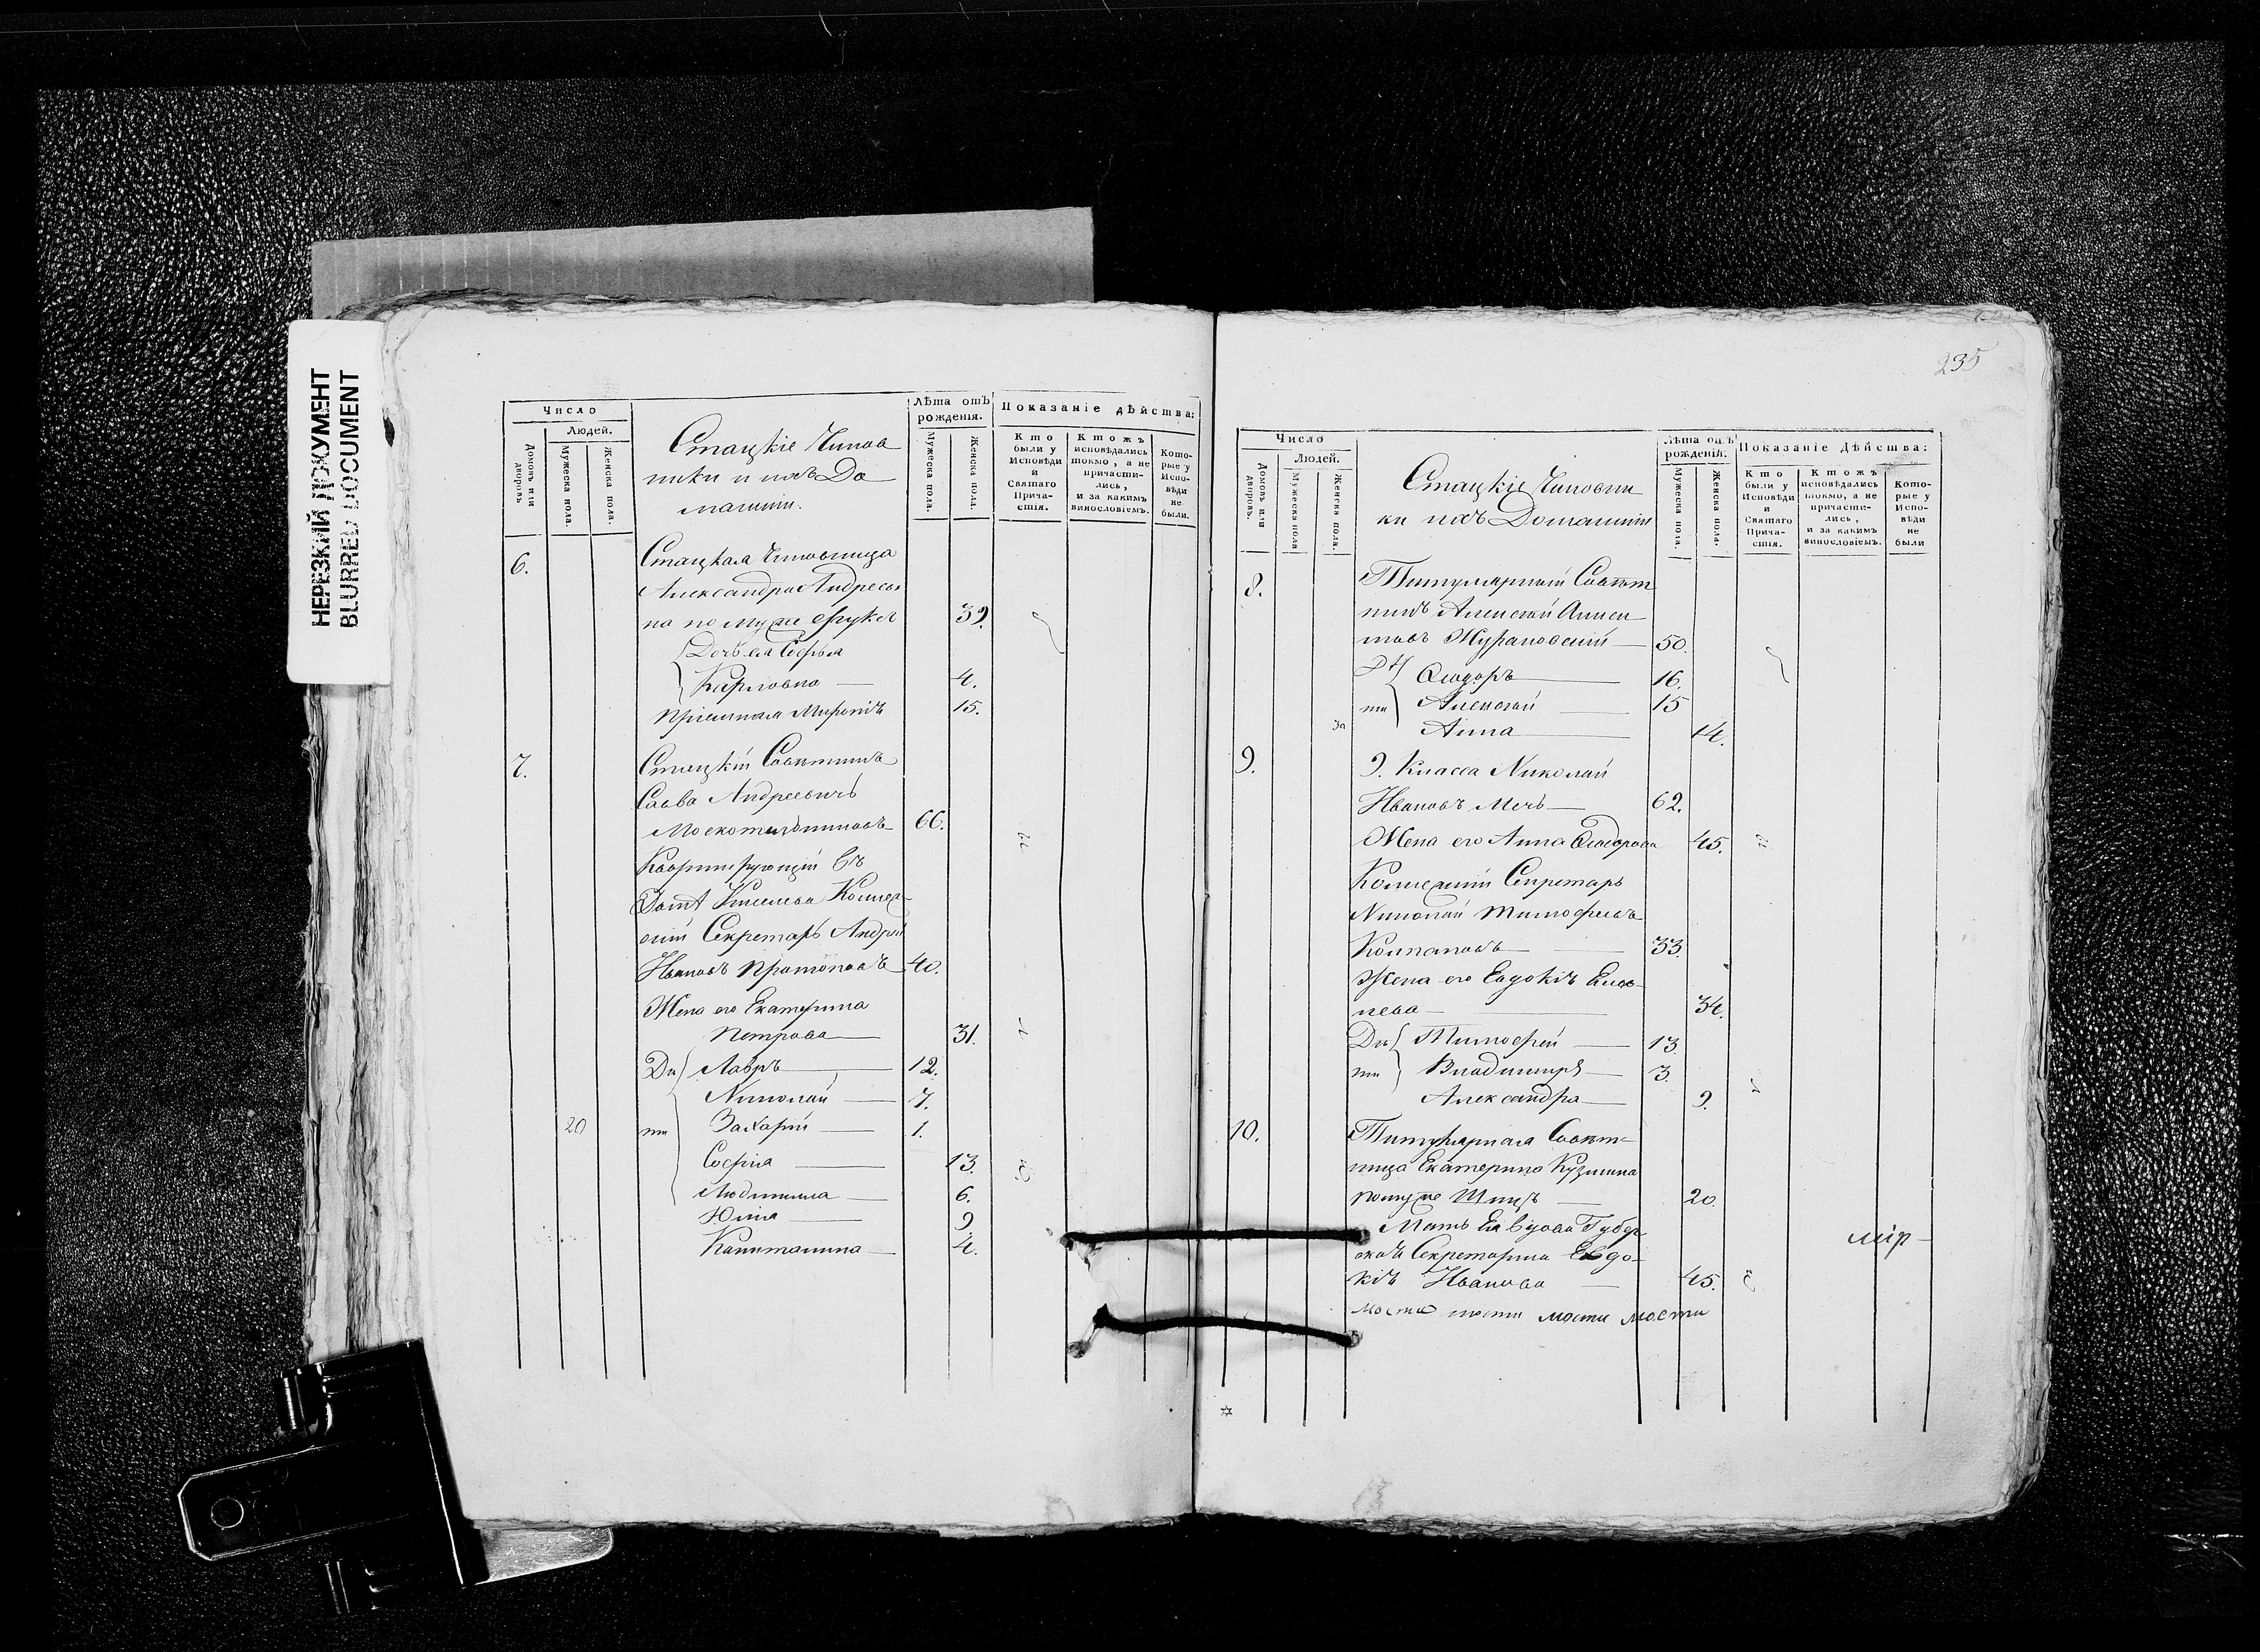 НЕРЕЗКИЙ ДОКУМЕНТ
BLURRED DOCUMENT
Число
Людей.
Домовъ или дворовъ
Мужеска пола.
Женска пола.
Стацкіе Чинов
ники и ихъ До
машніи.
Лѣта отъ рожденія.
Мужеска пола.
Женска пола.
Показаніе дѣйства:
Кто были у Исповѣди и Святаго Прича-стія.
Ктожъ исповѣдались токмо, а не причасти-лись, и за какимъ винословіемъ.
Кото-рые у Испо-вѣди не были.
6.
Стацкая Чиновница
Александра Андреев
на по мужи 39.
Дочь ея Софья
Карловна — 4.
15.
7.
Стацкій Совѣтникъ
Савва Андреевичъ
66.
Квартирующій въ
домѣ Киселева Коллеж-
скій Секретарь Андрей
Ивановъ Протопоповъ 40.
Жена его Екатерина
Петрова — 31.
Дѣ Лавръ — 12.
Николай — 7.
20 ти Захарій — 1.
Софія — 13.
Людмила — 6.
Юлія — 9
Капиталина — 4.
235
Число
Людей.
Домовъ или дворовъ.
Мужеска пола
Женска пола.
Стацкіе Чиновни
ки ихъ Домашніи
Лѣта отъ рожденій.
Мужеска пола.
Женска пола.
Показаніе Дѣйства:
Кто были у Исповѣди и Святаго Прича-стія.
Ктожъ исповѣдались токмо, а не причасти-лись, и за какимъ винословіемъ.
Кото-рые у Испо-вѣди не были
8.
Титулярный Совѣт
никъ Алексѣй
Журановскій — 50.
Дѣ Ѳеодоръ — 16.
ти Алексѣй — 15
Анна — 14.
9.
9. Класса Николай
Ивановъ Мечь — 62.
Жена его Анна Ѳеодорова 45.
Коллежскій Секретарь
Николай Тимофеевъ
Колпаковъ — 33.
Жена его Евдокія
34.
Дѣ Тимофей — 13
ти Владимиръ — 3.
Александра — 9.
10.
Титулярная Совѣт-
ница Екатерина Кузмина
помуже — 20.
Мать Ея вдова Губер
ская Секретарша Евдо-
кія Иванова — 45.
мір-